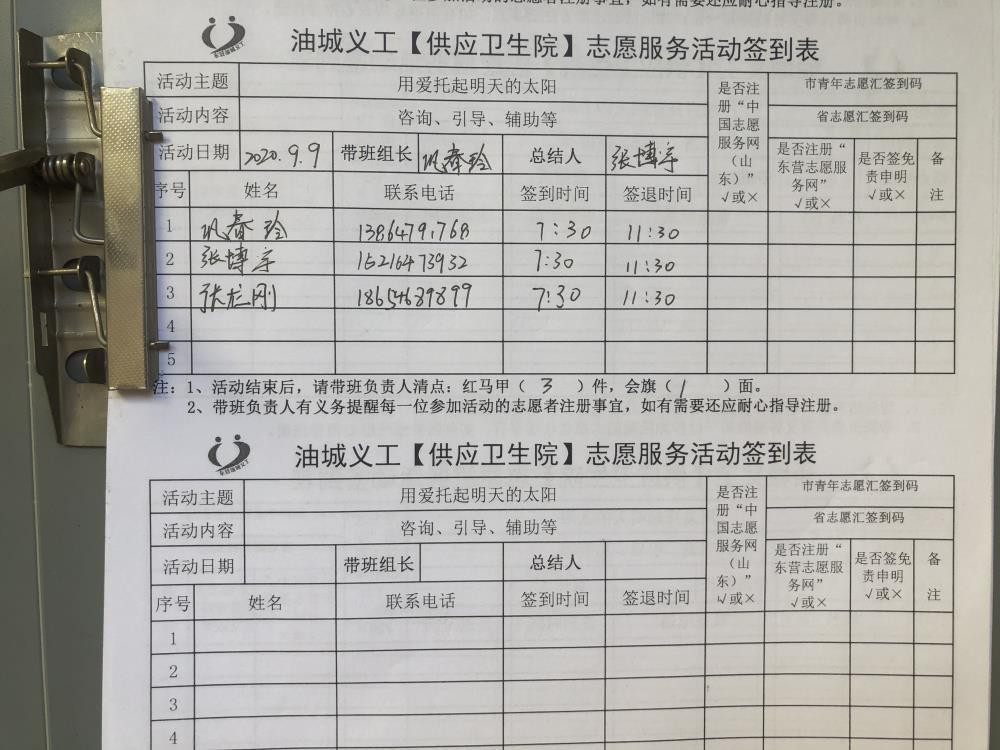 油城义工【供应卫生院】志愿服务活动签到表
活动主题 用爱托起明天的太阳 是否注册“中国志愿服务网（山东）”√或× 市青年志愿汇签到码
活动内容 咨询、引导、辅助等 省志愿汇签到码
活动日期 2020.9.9 带班组长 巩春玲 总结人 张博宇 是否注册“东营志愿服务网”√或× 是否签免责申明√或× 备注
序号 姓名 联系电话 签到时间 签退时间
1 巩春玲 13864791768 7:30 11:30
2 张博宇 15216473932 7:30 11:30
3 张龙刚 18654689899 7:30 11:30
4
5
注：1、活动结束后，请带班负责人清点：红马甲（ 3 ）件，会旗（ 1 ）面。
2、带班负责人有义务提醒每一位参加活动的志愿者注册事宜，如有需要还应耐心指导注册。
油城义工【供应卫生院】志愿服务活动签到表
活动主题 用爱托起明天的太阳 是否注册“中国志愿服务网（山东）”√或× 市青年志愿汇签到码
活动内容 咨询、引导、辅助等 省志愿汇签到码
活动日期 带班组长 总结人 是否注册“东营志愿服务网”√或× 是否签免责申明√或× 备注
序号 姓名 联系电话 签到时间 签退时间
1
2
3
4